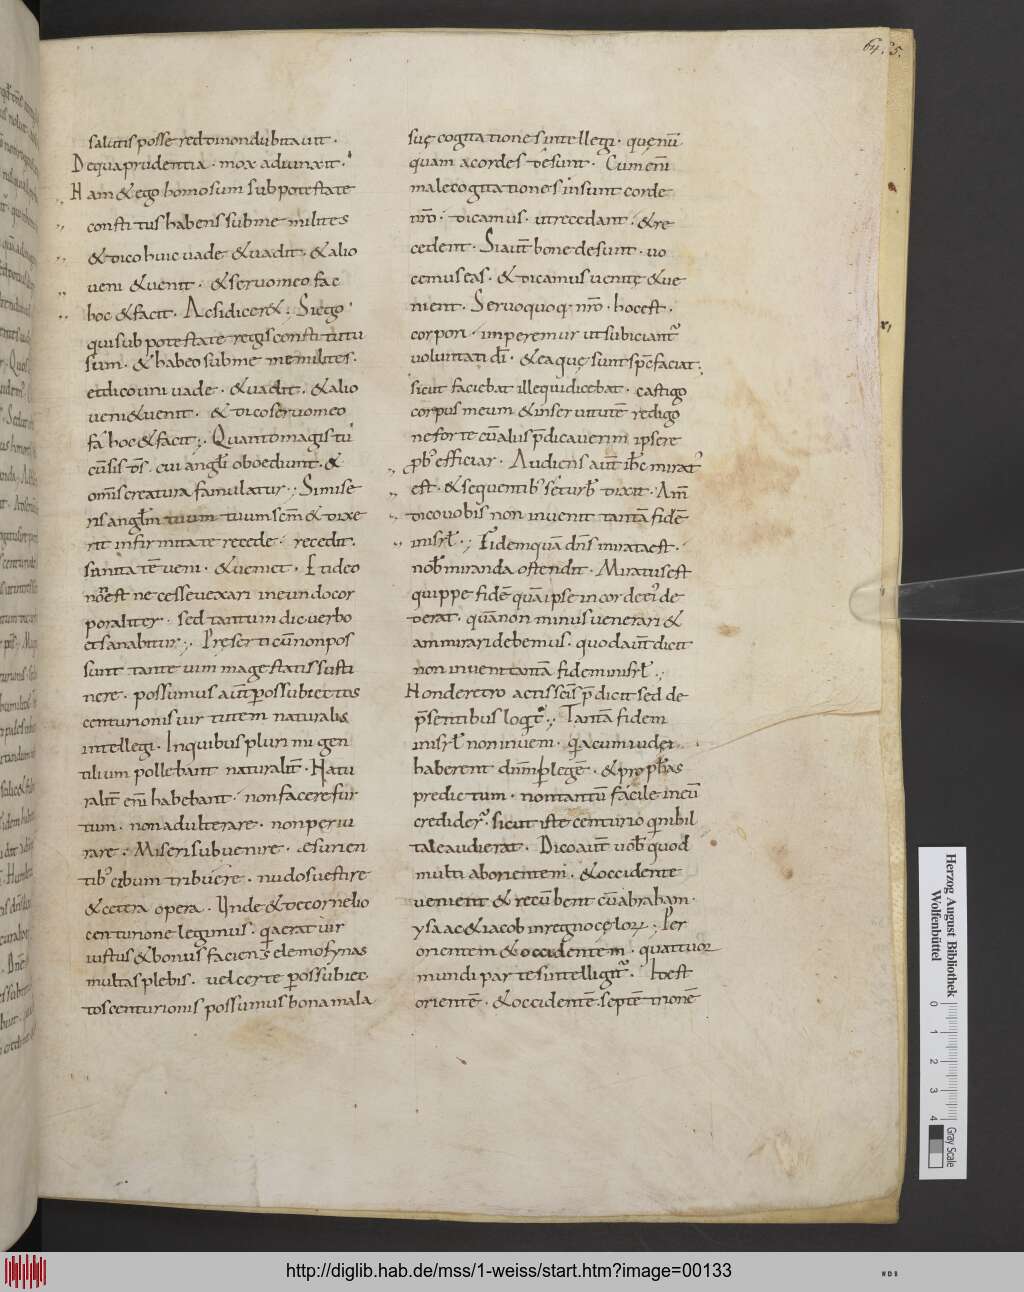 64. 65.
salutis posse reddi non dubitavit.
De qua prudentia. mox adiunxit.
Nam & ego homo sum sub potestate
constitutus habens sub me milites
& dico huic uade & uadit. & alio
ueni & uenit. & seruo meo fac
hoc & facit. Ac si dicer&; Si ego
qui sub potestate regis constitutu
sum. & habeo sub me milites.
et dico uni uade. & uadit. & alio
ueni & uenit. & dico seruo meo
fac hoc & facit; Quanto magis tu
cū sis dš. cui angli oboediunt. &
omīs creatura famulatur; Si mise
ris anglm tuum tuum scm & dixe
rit infirmitate recede. recedit.
sanitatē ueni. & ueniet. Et ideo
non est necesse uexari in eundo cor
poraliter. sed tantum dic uerbo
et sanabitur; Preser ti cū non pos
sunt tante uim magestatis susti
nere. possumus aut̄ per subiectos
centurionis uirtutem naturalē
intellegi. In quibus plurimi gen
tilium pollebant naturalit̄. Natu
ralit̄ enī habebant. non facere fur
tum. non adulterare. non periu
rare. Miseri subuenire. esurien
tibꝰ cibum tribuere. nudos uestire
& cetera opera. Unde & de cornelio
centurione legimus. qa erat uir
iustus & bonus faciens elemosynas
multas plebis. uel certe per subiec
tos centurionis possumus bona mala
suę cogitationes intellegi. quę nū
quam a cordes desunt. Cum enī
male cogitationes insunt corde
nr̄o. dicamus. ut recedant. & re
cedent. Si aut̄ bone desunt. uo
cemus eas. & dicamus uenite & ue
nient. Seruo quoq; nr̄o. hoc est.
corpori. imperemur ut subiciant̄
uoluntati dī. & ea quę sunt sp̄c faciat.
sicut faciebat ille qui dicebat. castigo
corpus meum & in seruitutē redigo
ne forte cū aliis p̄dicauerim ipse re
probꝰ efficiar. Audiens aut̄ ihc̄ mirat̄
est. & sequentibꝰ se turbꝰ dixit. Am̄
dico uobis non inueni tantā fidē
in isrł; Fidem quā dn̄s miratus est.
nobꝰ miranda ostendit. Miratus est
quippe fidē quā ipse in corde eiꝰ de
derat. quā non minus uenerari &
ammirari debemus. quod aut̄ dicit
non inueni tantā fidem in isrł;
Non de retro actis scīs p̄dicit sed de
p̄sentibus loqt̄; Tantā fidem
in isrł non inueni. qa cum iudęi
haberent dn̄m p̄ legē. & prophas
predictum. non tantū facile in eū
credider̄. sicut iste centurio q nihil
tale audierat. Dico aut̄ uobꝰ quod
multi ab orientem. & occidente
uenient & recūbent cū abraham.
ysaac & iacob in regno cęlorꝝ; Per
orientem & occidentem. quattuor
mundi partes intelligit̄. Id est
orientē. & occidentē. septētrionē
Herzog August Bibliothek
Wolfenbüttel
0 1 2 3 4
Gray Scale
http://diglib.hab.de/mss/1-weiss/start.htm?image=00133